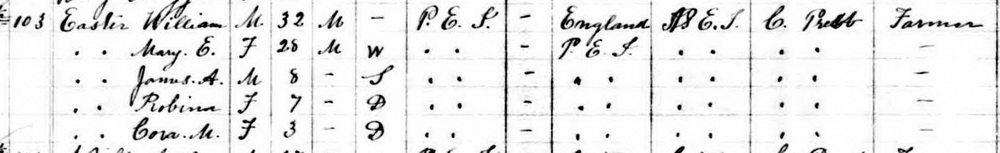 103 Easter William M 32 M - P. E. I. - England P. E. I. C. Presb Farmer
" " Mary. E. F 28 M W " " - P. E. I. " " " " -
" " James. A. M 8 - S " " - " " " " " " -
" " Robina F 7 - D " " - " " " " " " -
" " Cora. M. F 3 - D " " - " " " " " " -